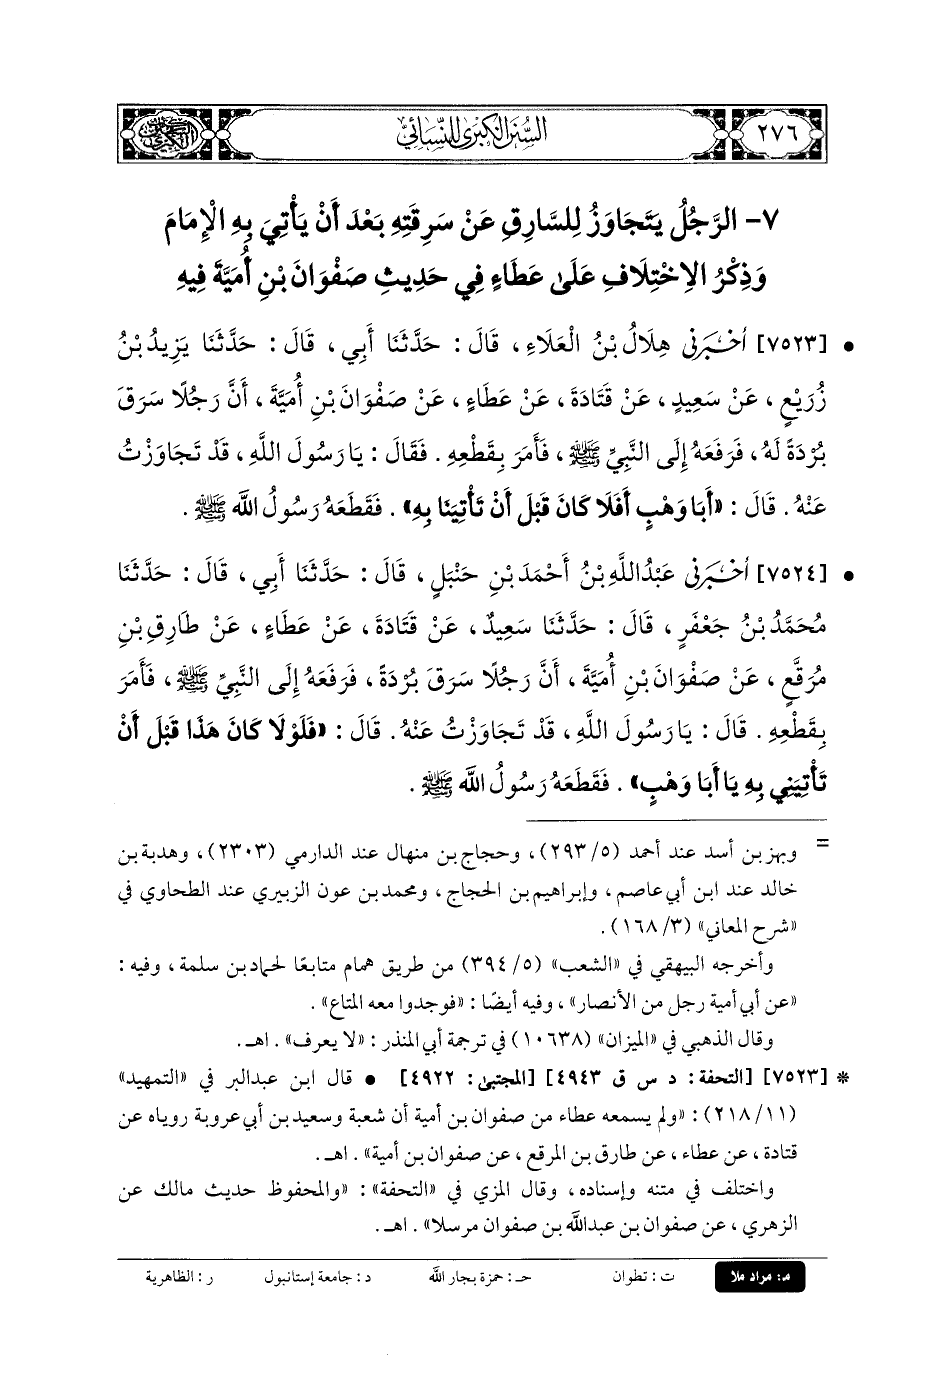 ٢٧٦
السنن الكبرى للنسائي
٧- الرَّجُلُ يَتَجَاوَزُ لِلسَّارِقِ عَنْ سَرِقَتِهِ بَعْدَ أَنْ يَأْتِيَ بِهِ الْإِمَامَ
وَذِكْرُ الِاخْتِلَافِ عَلَى عَطَاءٍ فِي حَدِيثِ صَفْوَانَ بْنِ أُمَيَّةَ فِيهِ
• [٧٥٢٣] أَخْبَرَنِي هِلَالُ بْنُ الْعَلَاءِ، قَالَ: حَدَّثَنَا أَبِي، قَالَ: حَدَّثَنَا يَزِيدُ بْنُ
زُرَيْعٍ، عَنْ سَعِيدٍ، عَنْ قَتَادَةَ، عَنْ عَطَاءٍ، عَنْ صَفْوَانَ بْنِ أُمَيَّةَ، أَنَّ رَجُلًا سَرَقَ
بُرْدَةً لَهُ، فَرَفَعَهُ إِلَى النَّبِيِّ ﷺ، فَأَمَرَ بِقَطْعِهِ. فَقَالَ: يَا رَسُولَ اللَّهِ، قَدْ تَجَاوَزْتُ
عَنْهُ. قَالَ: «أَبَا وَهْبٍ أَفَلَا كَانَ قَبْلَ أَنْ تَأْتِيَنَا بِهِ». فَقَطَعَهُ رَسُولُ اللَّه ﷺ.
• [٧٥٢٤] أَخْبَرَنِي عَبْدُ اللَّهِ بْنُ أَحْمَدَ بْنِ حَنْبَلٍ، قَالَ: حَدَّثَنَا أَبِي، قَالَ: حَدَّثَنَا
مُحَمَّدُ بْنُ جَعْفَرٍ، قَالَ: حَدَّثَنَا سَعِيدٌ، عَنْ قَتَادَةَ، عَنْ عَطَاءٍ، عَنْ طَارِقِ بْنِ
مُرَقَّعٍ، عَنْ صَفْوَانَ بْنِ أُمَيَّةَ، أَنَّ رَجُلًا سَرَقَ بُرْدَةً، فَرَفَعَهُ إِلَى النَّبِيِّ ﷺ، فَأَمَرَ
بِقَطْعِهِ. قَالَ: يَا رَسُولَ اللَّهِ، قَدْ تَجَاوَزْتُ عَنْهُ. قَالَ: «فَلَوْلَا كَانَ هَذَا قَبْلَ أَنْ
تَأْتِيَنِي بِهِ يَا أَبَا وَهْبٍ». فَقَطَعَهُ رَسُولُ اللَّه ﷺ.
= وبهز بن أسد عند أحمد (٥/ ٢٩٣)، وحجاج بن منهال عند الدارمي (٢٣٠٣)، وهدبة بن
خالد عند ابن أبي عاصم، وإبراهيم بن الحجاج، ومحمد بن عون الزبيري عند الطحاوي في
«شرح المعاني» (٣/ ١٦٨).
وأخرجه البيهقي في «الشعب» (٥/ ٣٩٤) من طريق همام متابعًا لحماد بن سلمة، وفيه:
«عن أبي أمية رجل من الأنصار»، وفيه أيضًا: «فوجدوا معه المتاع».
وقال الذهبي في «الميزان» (١٠٦٣٨) في ترجمة أبي المنذر: «لا يعرف». اهـ.
* [٧٥٢٣] [التحفة: د س ق ٤٩٤٣] [المجتبى: ٤٩٢٢] • قال ابن عبد البر في «التمهيد»
(١١/ ٢١٨): «ولم يسمعه عطاء من صفوان بن أمية أن شعبة وسعيد بن أبي عروبة روياه عن
قتادة، عن عطاء، عن طارق بن المرقع، عن صفوان بن أمية». اهـ.
واختلف في متنه وإسناده، وقال المزي في «التحفة»: «والمحفوظ حديث مالك عن
الزهري، عن صفوان بن عبد الله بن صفوان مرسلا». اهـ.
م: مراد ملا ت: تطوان حـ: حمزة بجار الله د: جامعة إستانبول ر: الظاهرية